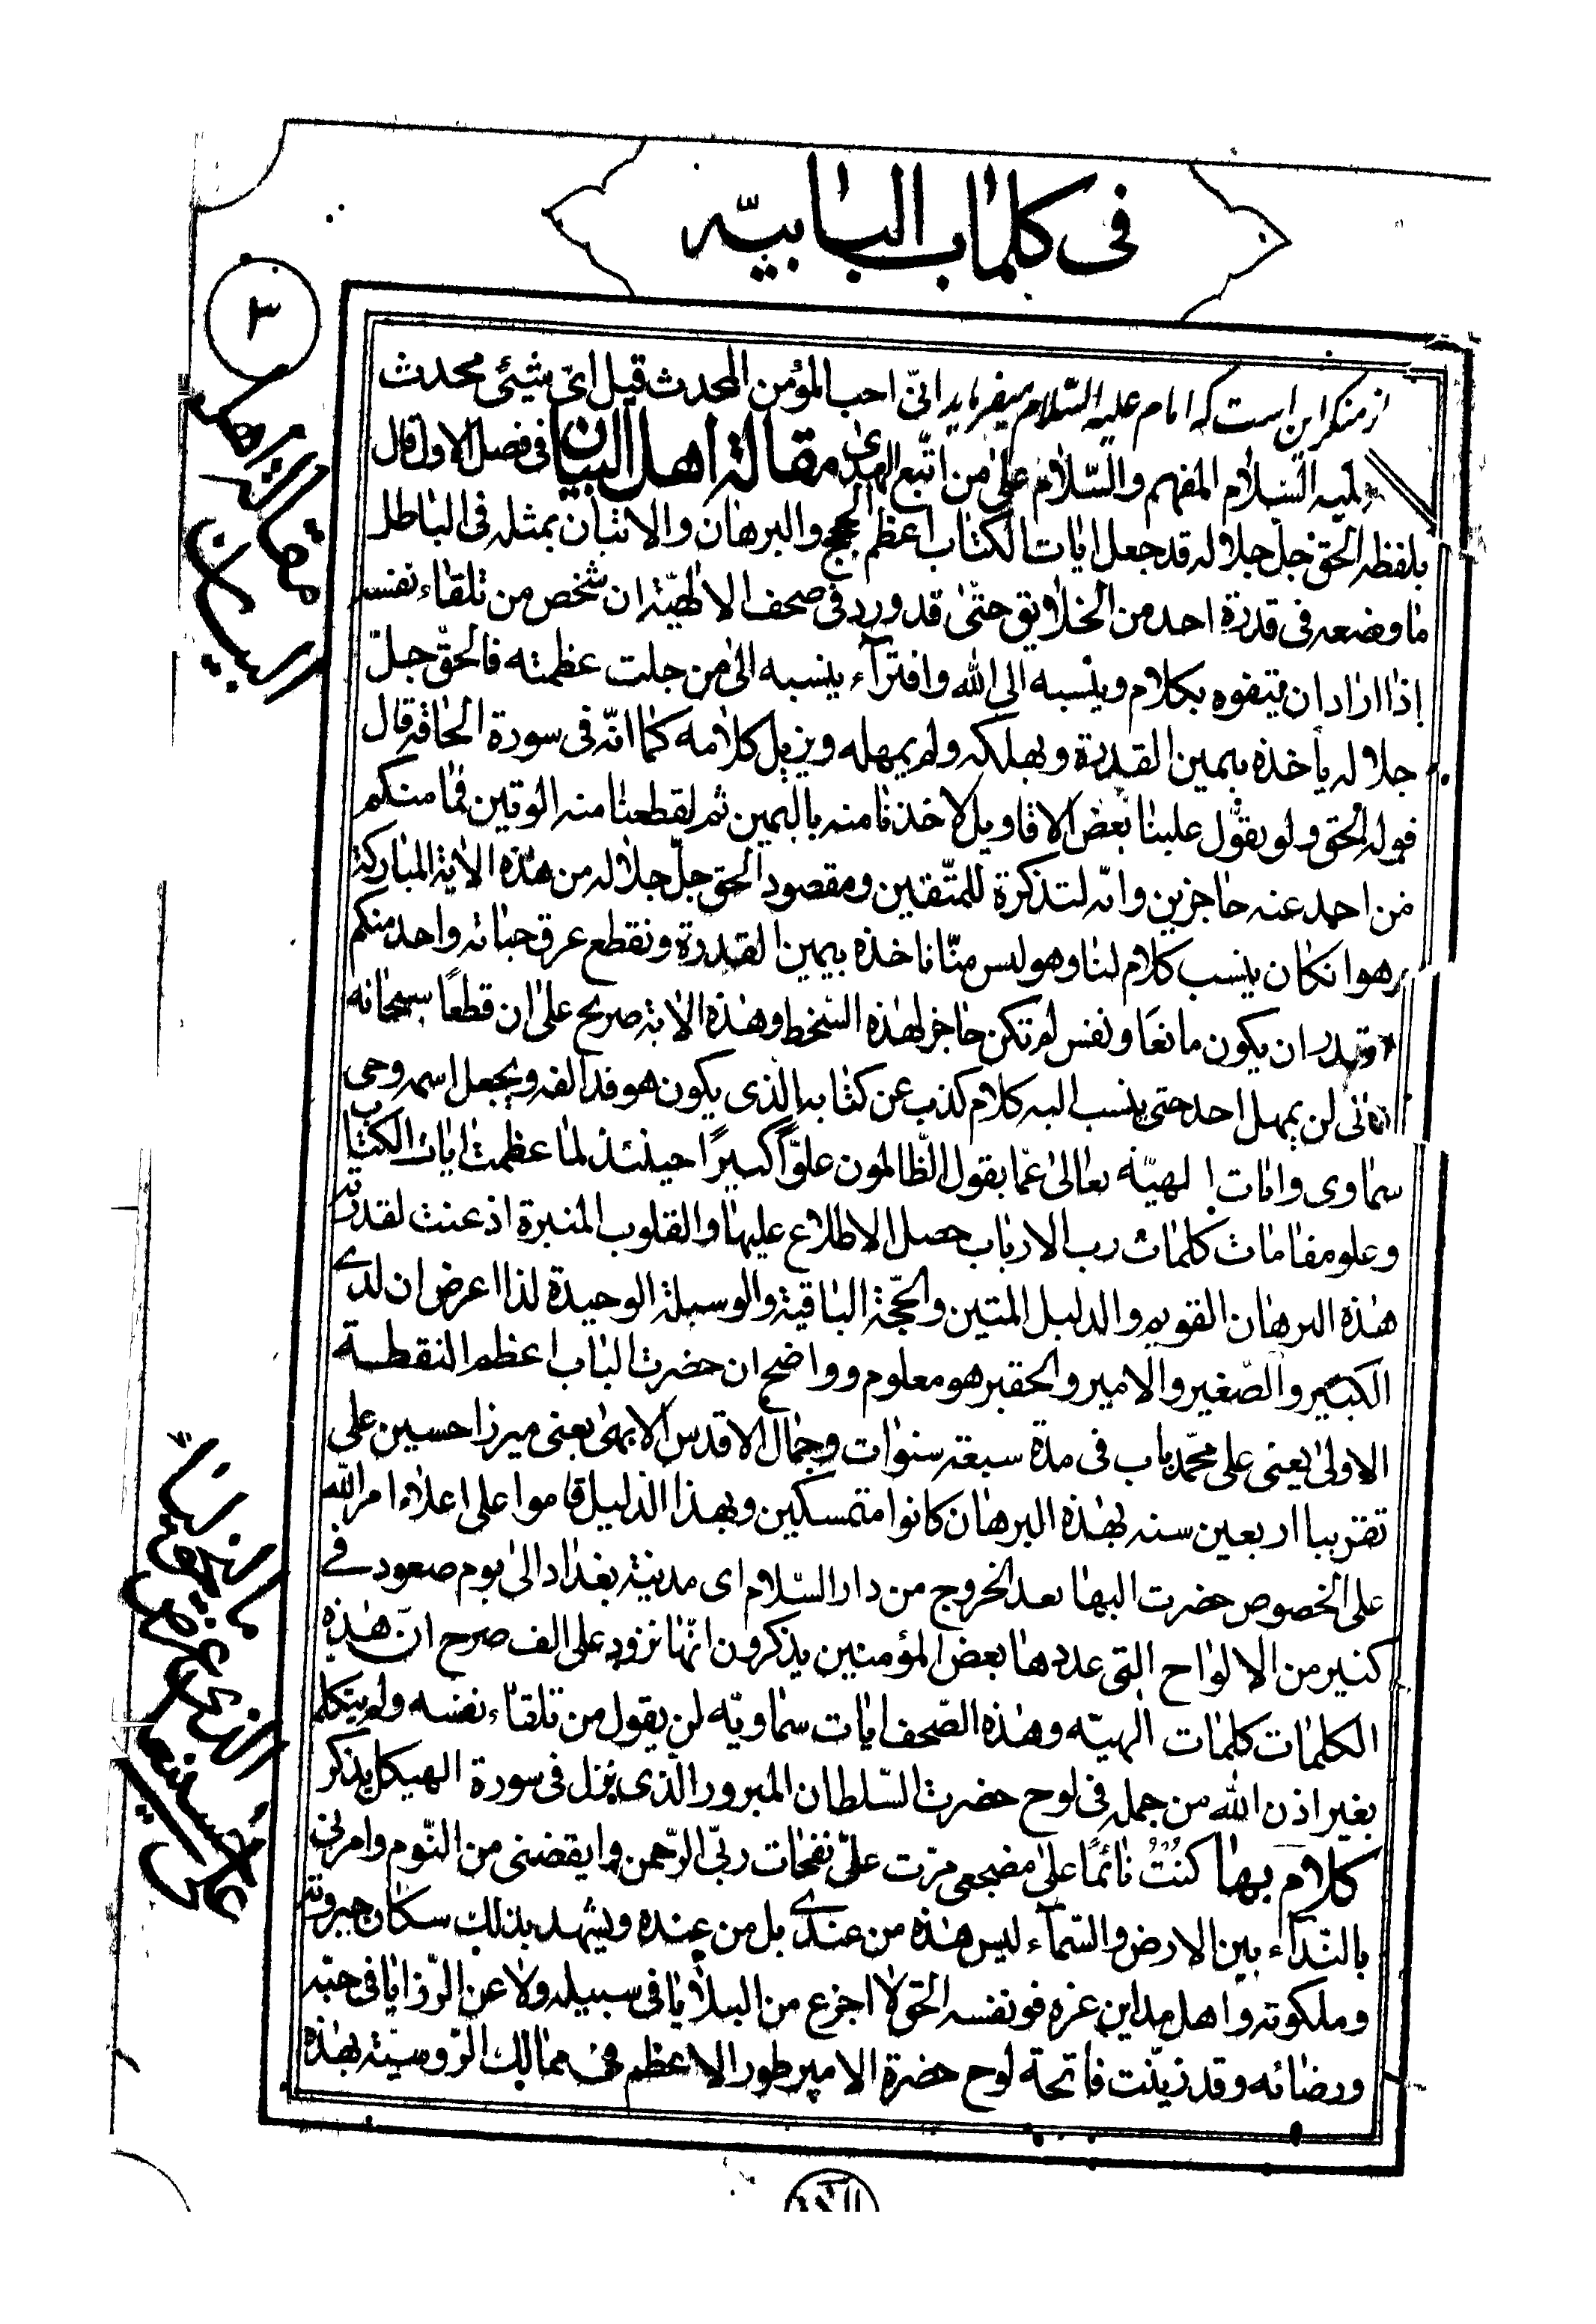 فى كلمات البابيّه
٣
از منكر اين است كه امام عليه السّلام ميفرمايد انىّ احب المؤمن المحدث قيل اىّ شيئى محدث
عليه السلام المفهم والسّلام على من اتّبع الهدى مقالة اهل البيان فى فصل الاول قال
بلفظه الحق جل جلاله قد جعل ايات الكتاب اعظم الحجج والبرهان والاتيان بمثله فى الباطل
ما وضعه فى قدرة احد من الخلايق حتّى قد ورد فى صحف الالهيّة ان شخص من تلقاء نفسه
إذا اراد ان يتفوه بكلام وينسبه الى الله وافترآء ينسبه الى من جلت عظمته فالحقّ جلّ
جلاله يأخذه بيمين القدرة ويهلكه ولم يمهله ويزيل كلامه كما انّه فى سورة الحاقة قال
قوله الحق ولو تقول علينا بعض الاقاويل لاخذنا منه باليمين ثم لقطعنا منه الوتين فما منكم
من احد عنه حاجزين وانّه لتذكرة للمتّقين ومقصود الحق جلّ جلاله من هذه الاية المباركة
هو انكان ينسب كلام لنا وهو ليس منّا ناخذه بيمين القدرة ونقطع عرق حياته واحد منكم
ان يكون مانعا ونفس لم تكن حاجز لهذه السّخط وهذه الاية صريح على ان قطعاً سبحانه
لن يمهل احد حتى ينسب اليه كلام كذب عن كتابه الذى يكون هو قد الفه ويجعل اسمه وحى
سماوى وايات الهيّه تعالى عمّا يقول الظّالمون علوّاً كبيرًا حينئذ لما عظمت ايات الكتاب
وعلو مقامات كلمات رب الارباب حصل الاطلاع عليها والقلوب المنيرة اذعنت لقدرته
هذه البرهان القويم والدليل المتين والحجّة الباقية والوسيلة الوحيدة لذا اعرض ان لدى
الكبير والصّغير والامير والحقير هو معلوم وواضح ان حضرت الباب اعظم النقطة
الاولى يعنى على محمّد باب فى مدّة سبعة سنوات وجمال الاقدس الابهى يعنى ميرزا حسين على
تقريبا اربعين سنه بهذه البرهان كانوا متمسكين وبهذا الدليل قاموا على اعلاء امر الله
على الخصوص حضرت البها بعد الخروج من دار السّلام اى مدينة بغداد الى يوم صعود فى
كثير من الالواح التى عددها بعض المؤمنين يذكرون انّها تزود على الف صرح انّ هذه
الكلمات كلمات الهيّه وهذه الصّحف ايات سماويّه لن يقول من تلقاء نفسه ولم يتكلم
بغير اذن الله من جمله فى لوح حضرت السّلطان المبرور الّذى نزل فى سورة الهيكل يذكر
كلام بها كنتُ نائمًا على مضجعى مرّت علىّ نفحات ربّى الرّحمن وايقضنى من النّوم وامرنى
بالنّدآء بين الارض والسّمآء ليس هذه من عندى بل من عنده ويشهد بذلك سكان جبروته
وملكوته واهل مداين عزه فونفسه الحق لا اجزع من البلايا فى سبيله ولا عن الرّزايا فى حبّه
ورضائه وقد زيّنت فاتحة لوح حضرة الامپرطور الاعظم فى ممالك الرّوسيّة بهذه